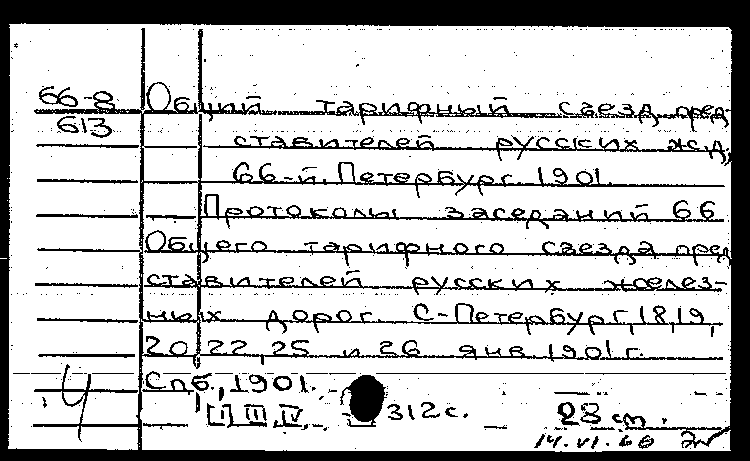 66-8
613
Общий тарифный съезд пред-
ставителей русских ж.д.
66-й. Петербург. 1901.
Протоколы заседаний 66
Общего тарифного съезда пред
ставителей русских желез-
ных дорог. С-Петербург, 18, 19,
20, 22, 25 и 26 янв. 1901 г.
Спб., 1901.
312 с. 28 cm.
4
14.VI.66